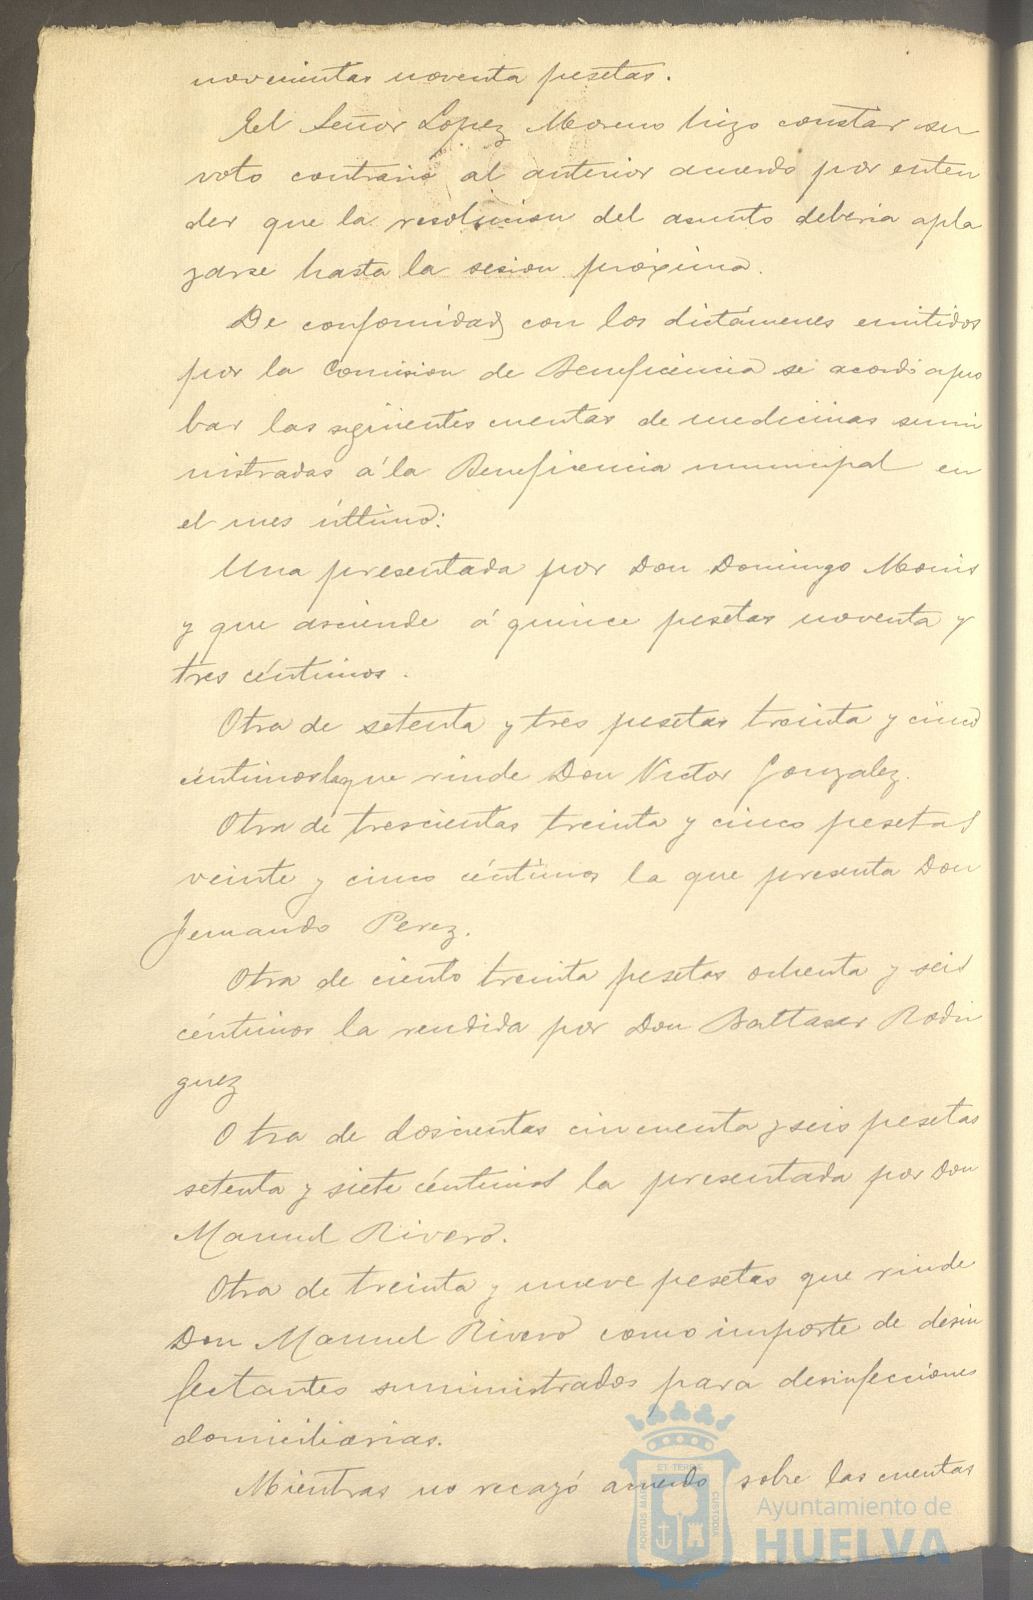 novecientas noventa pesetas.
El Señor Lopez Moreno hizo constar su
voto contrario al anterior acuerdo por enten
der que la resolucion del asunto deberia apla
zarse hasta la sesion próxima.
De conformidad con los dictámenes emitidos
por la Comision de Beneficencia se acordó apro
bar las siguientes cuentas de medicinas sumi
nistradas á la Beneficencia municipal en
el mes último:
Una presentada por Don Domingo Monis
y que asciende á quince pesetas noventa y
tres céntimos.
Otra de setenta y tres pesetas treinta y cinco
céntimos la que rinde Don Victor Gonzalez.
Otra de trescientas treinta y cinco pesetas
veinte y cinco céntimos la que presenta Don
Fernando Perez.
Otra de ciento treinta pesetas ochenta y seis
céntimos la rendida por Don Baltasar Rodri
guez
Otra de doscientas cincuenta y seis pesetas
setenta y siete céntimos la presentada por Don
Manuel Rivero.
Otra de treinta y nueve pesetas que rinde
Don Manuel Rivero como importe de desin
fectantes suministrados para desinfecciones
domiciliarias.
Mientras no recayó acuerdo sobre las cuentas
PORTUS MARIS ET TERRE CUSTODIA
Ayuntamiento de
HUELVA